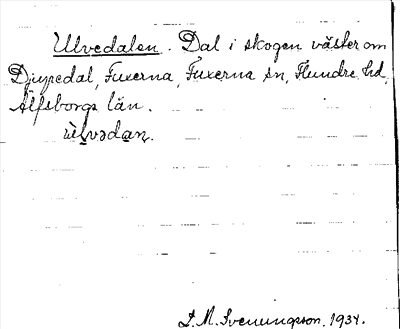 Ulvedalen. Dal i skogen väster om
Djupedal, Fuxerna, Fuxerna sn, Flundre hd,
Älfsborgs län.
ùlvədan.
D. M. Svenungsson. 1934.